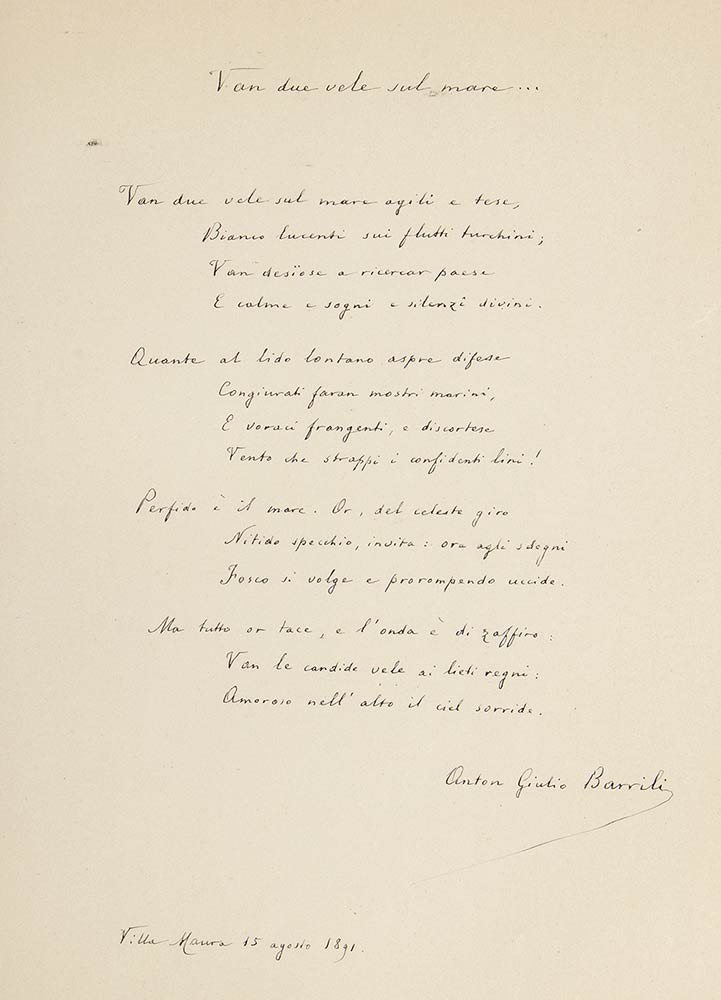 Van due vele sul mare...
Van due vele sul mare agili e tese,
Bianco lucenti sui flutti turchini;
Van desïose a ricercar paese
E calme e sogni e silenzî divini.
Quante al lido lontano aspre difese
Congiurati faran mostri marini,
E voraci frangenti, e discortese
Vento che strappi i confidenti lini!
Perfido è il mare. Or, del celeste giro
Nitido specchio, invita: ora agli sdegni
Fosco si volge e prorompendo uccide.
Ma tutto or tace, e l'onda è di zaffiro:
Van le candide vele ai lieti regni:
Amoroso nell'alto il ciel sorride.
Anton Giulio Barrili
Villa Maura 15 agosto 1891.